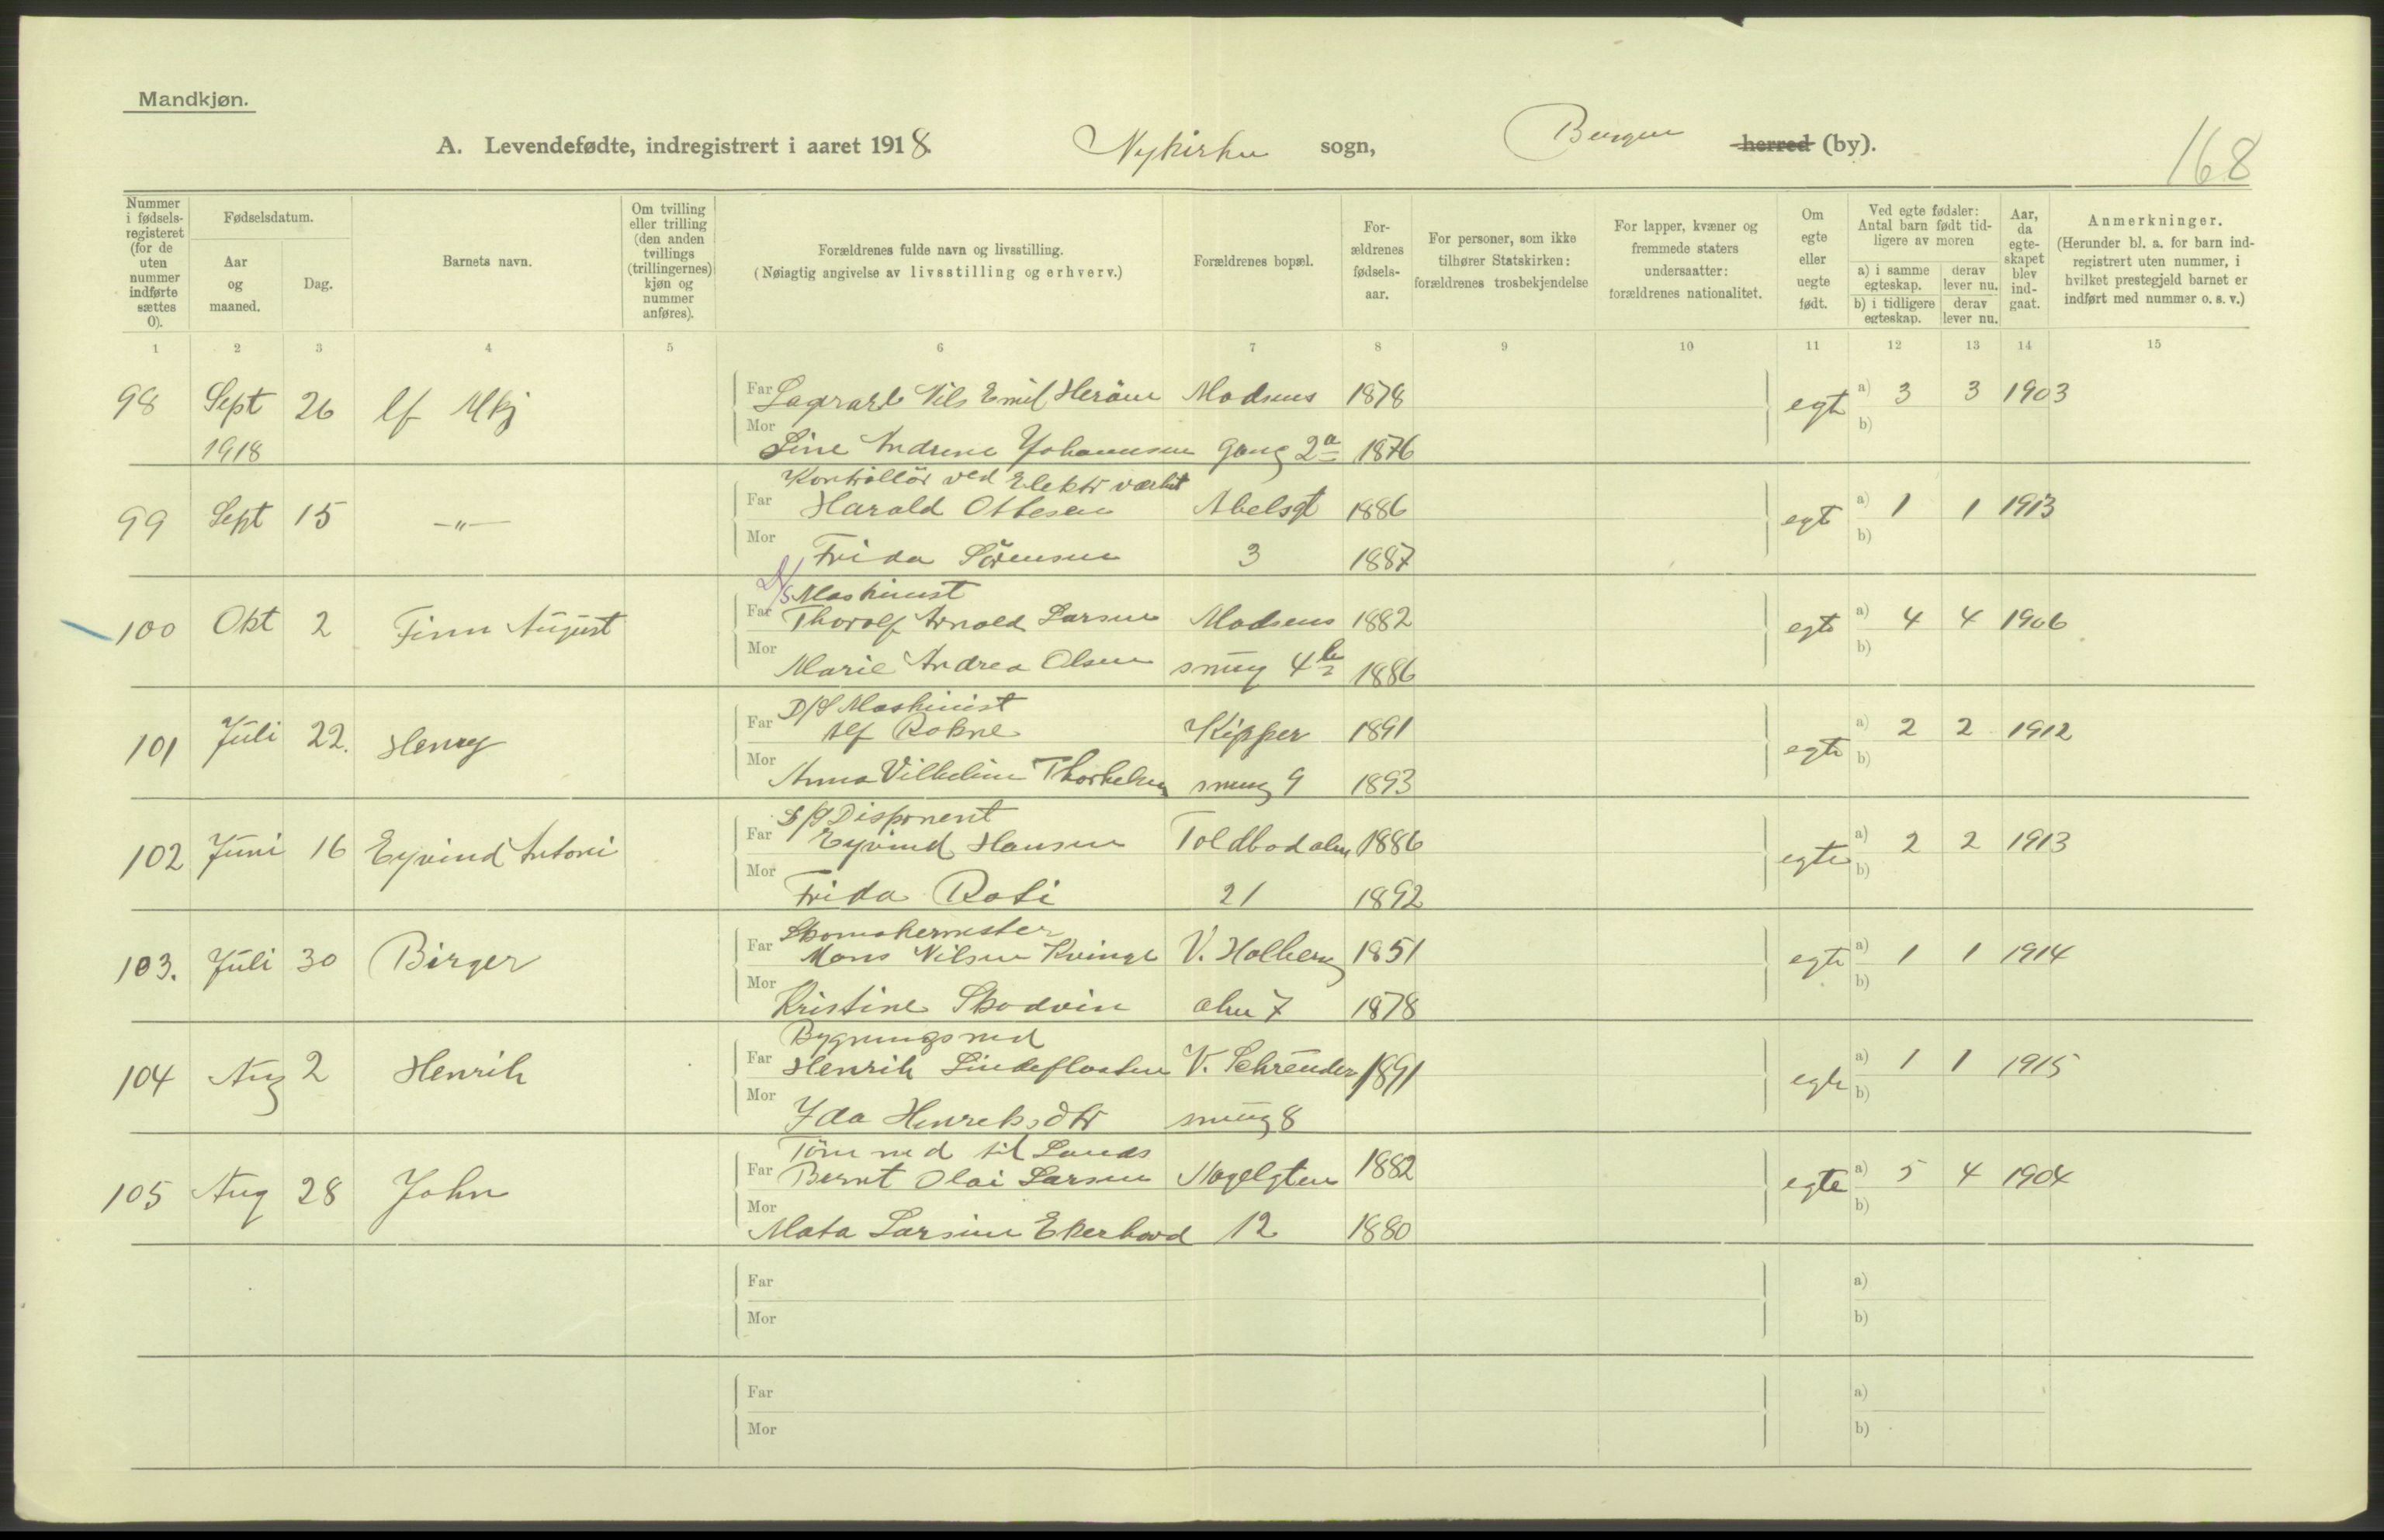 Mandkjøn.
A. Levendefødte, indregistrert i aaret 1918. Nykirken sogn, Bergen herred (by). 168
Nummer i fødsels-registeret (for de uten nummer indførte sættes 0).
Fødselsdatum.
Aar og maaned.
Dag.
Barnets navn.
Om tvilling eller trilling (den anden tvillings (trillingernes) kjøn og nummer anføres).
Forældrenes fulde navn og livsstilling.
(Nøiagtig angivelse av livsstilling og erhverv.)
Forældrenes bopæl.
For-ældrenes fødsels-aar.
For personer, som ikke tilhører Statskirken: forældrenes trosbekjendelse
For lapper, kvæner og fremmede staters undersaatter: forældrenes nationalitet.
Om egte eller uegte født.
Ved egte fødsler: Antal barn født tid-ligere av moren
a) i samme egteskap.
derav lever nu.
b) i tidligere egteskap.
derav lever nu.
Aar, da egte-skapet blev ind-gaat.
Anmerkninger.
(Herunder bl. a. for barn ind-registrert uten nummer, i hvilket prestegjeld barnet er indført med nummer o. s. v.)
1 2 3 4 5 6 7 8 9 10 11 12 13 14 15
98 Sept 26 lf Mkj Far Lagrarb Nils Emil Madsens 1878 egte a) 3 3 1903
1918 Mor Line Andrene Johannesen gang 2a 1876 b)
Kontrollör ved Elektr værket
99 Sept 15 —"— Far Harald Ottesen Abelsgt 1886 egte a) 1 1 1913
Mor Frida Sörensen 3 1887 b)
D/S Maskinist
100 Okt 2 Finn August Far Thorolf Arnold Larsen Madsens 1882 egte a) 4 4 1906
Mor Marie Andrea Olsen smug 4b 1886 b)
D/S Maskinist
101 Juli 22. Henry Far Alf Rokne Kipper 1891 egte a) 2 2 1912
Mor Anna Vilhelmine Thorkelsen smug 9 1893 b)
Disponent
102 Juni 16 Eyvind Antoni Far Eyvind Hansen Toldbodalm 1886 egte a) 2 2 1913
Mor Frida Roti 21 1892 b)
Skomakermester
103. Juli 30 Birger Far Mons Nilsen Kvinge V. Holberg 1851 egte a) 1 1 1914
Mor Kristine Skodvin alm 7 1878 b)
Bygningssned
104 Aug 2 Henrik Far Henrik Lindefloaten V. Schreuder 1891 egte a) 1 1 1915
Mor Ida Henriksdtr smug 8 b)
Töm ned til Lands
105 Aug 28 John Far Bernt Olai Larsen Nagelgten 1882 egte a) 5 4 1904
Mor Mata Larsine Ekerhovd 12 1880 b)
Far a)
Mor b)
Far a)
Mor b)